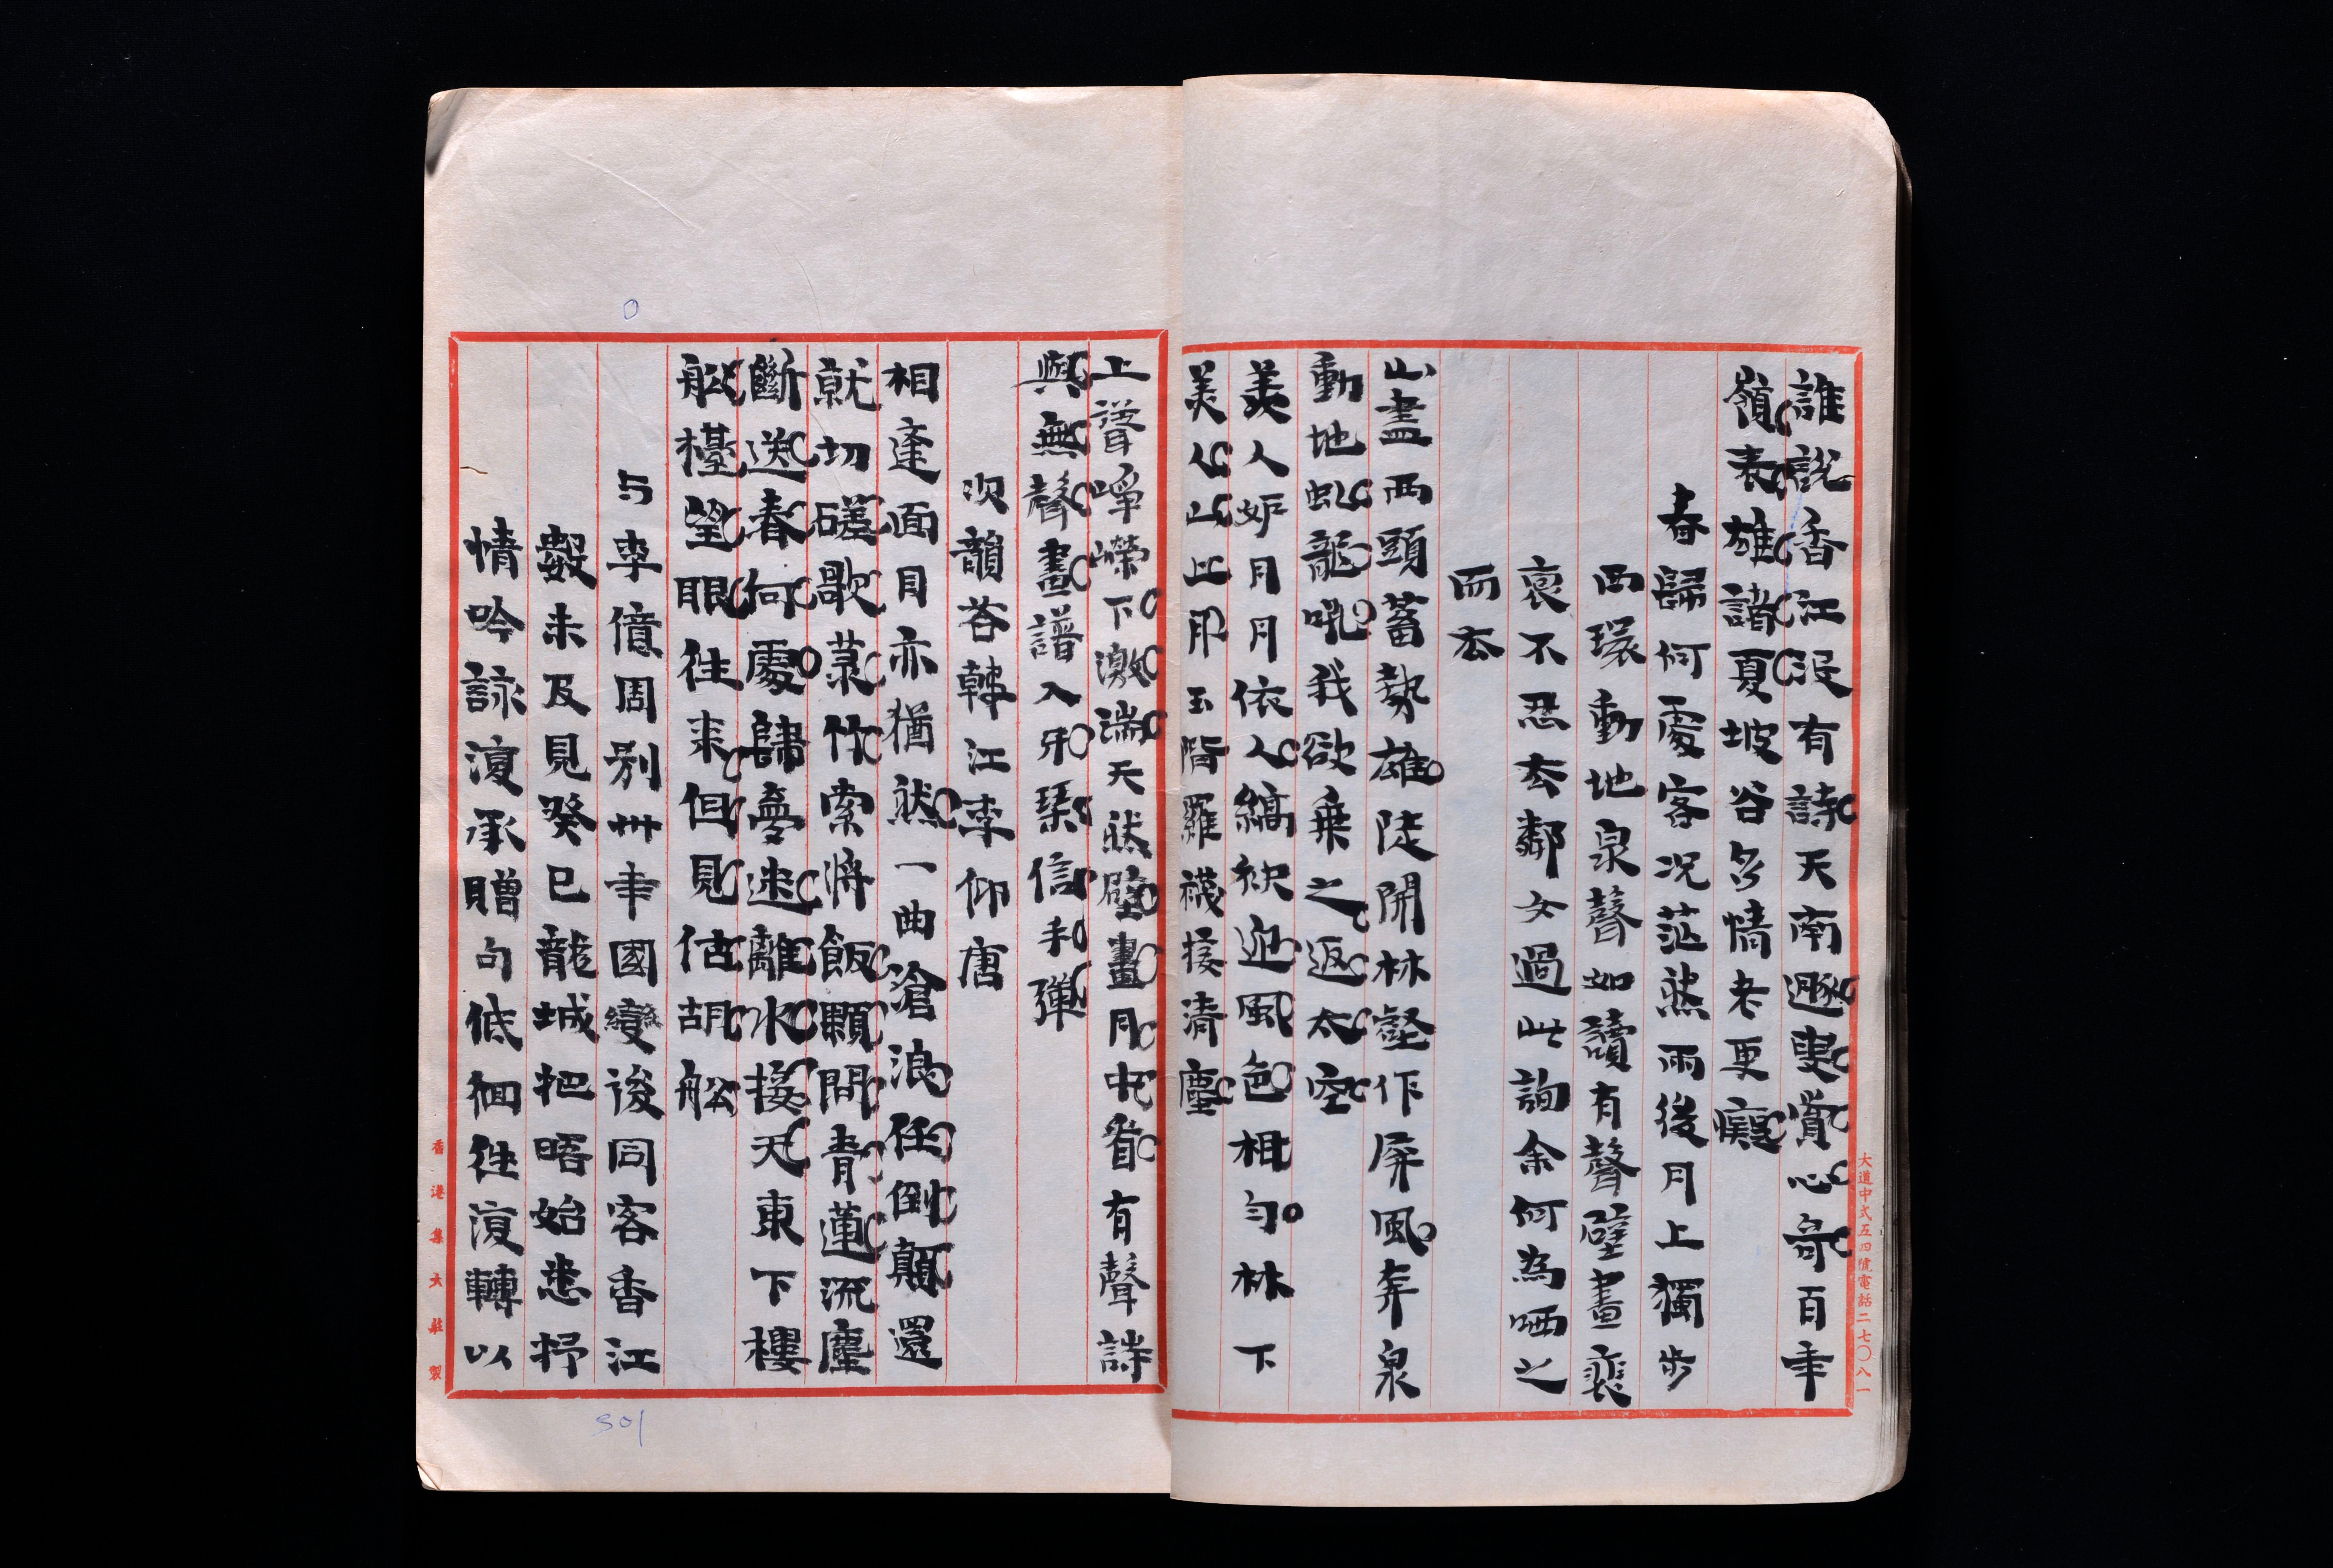 誰說香江沒有詩天南遯叟賞心奇百年
嶺表雄諸夏坡谷多情老更癡
春歸何處客況茫然雨後月上獨步
西環動地泉聲如讀有聲壁畫裴
裒不忍去鄰女過此詢余何為哂之
而去
山盡西頭蓄勢雄陡開林壑作屏風奔泉
動地虬龍吼我欲乘之返太空
美人妒月月依人縞袂迎風色相勻林下
美人山上月玉階羅襪接清塵
上聳崢嶸下激湍天然壁畫月中看有聲詩
與無聲畫譜入牙琴信手彈
次韻答韓江李仰唐
相逢面目亦猶然一曲滄浪任倒顛還
就切磋歌菉竹索將飯顆問青蓮流塵
斷送春何處歸夢迷離水接天東下樓
船檯望眼往來但見估胡船
与李億周別卅年國變後同客香江
數未及見癸巳龍城把晤始悉抒
情吟詠復承贈句低徊往復轉以
大道中式五四號電話二七〇八一
香港集大莊製
501